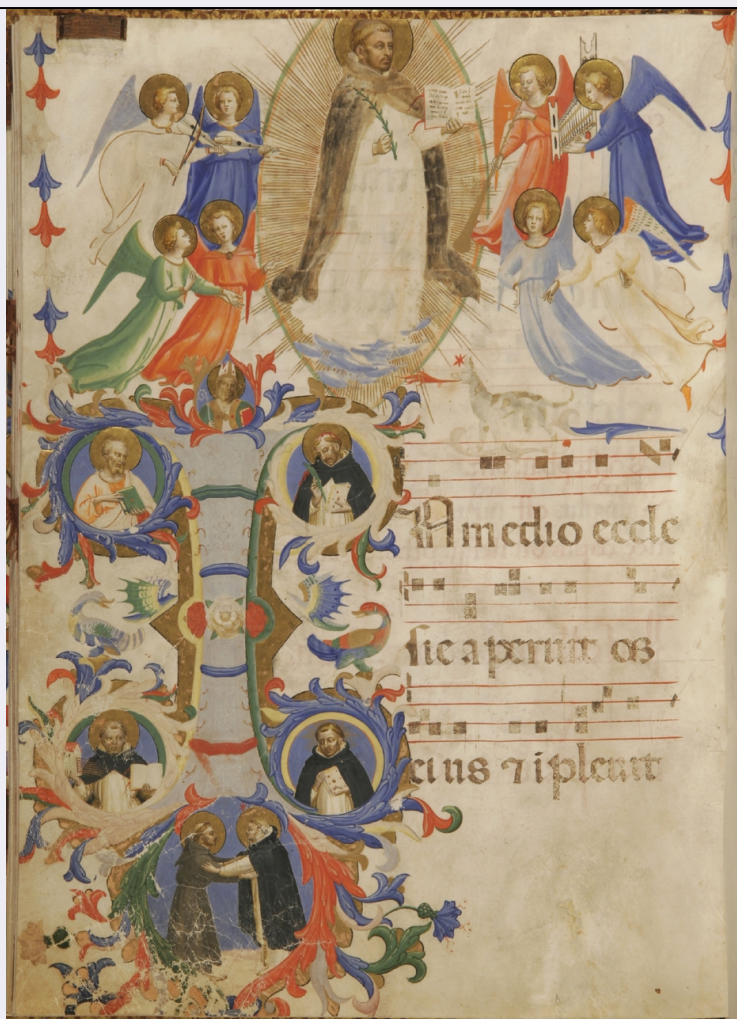 IN medio eccle
sie aperuit os
eius ⁊ ipleuit